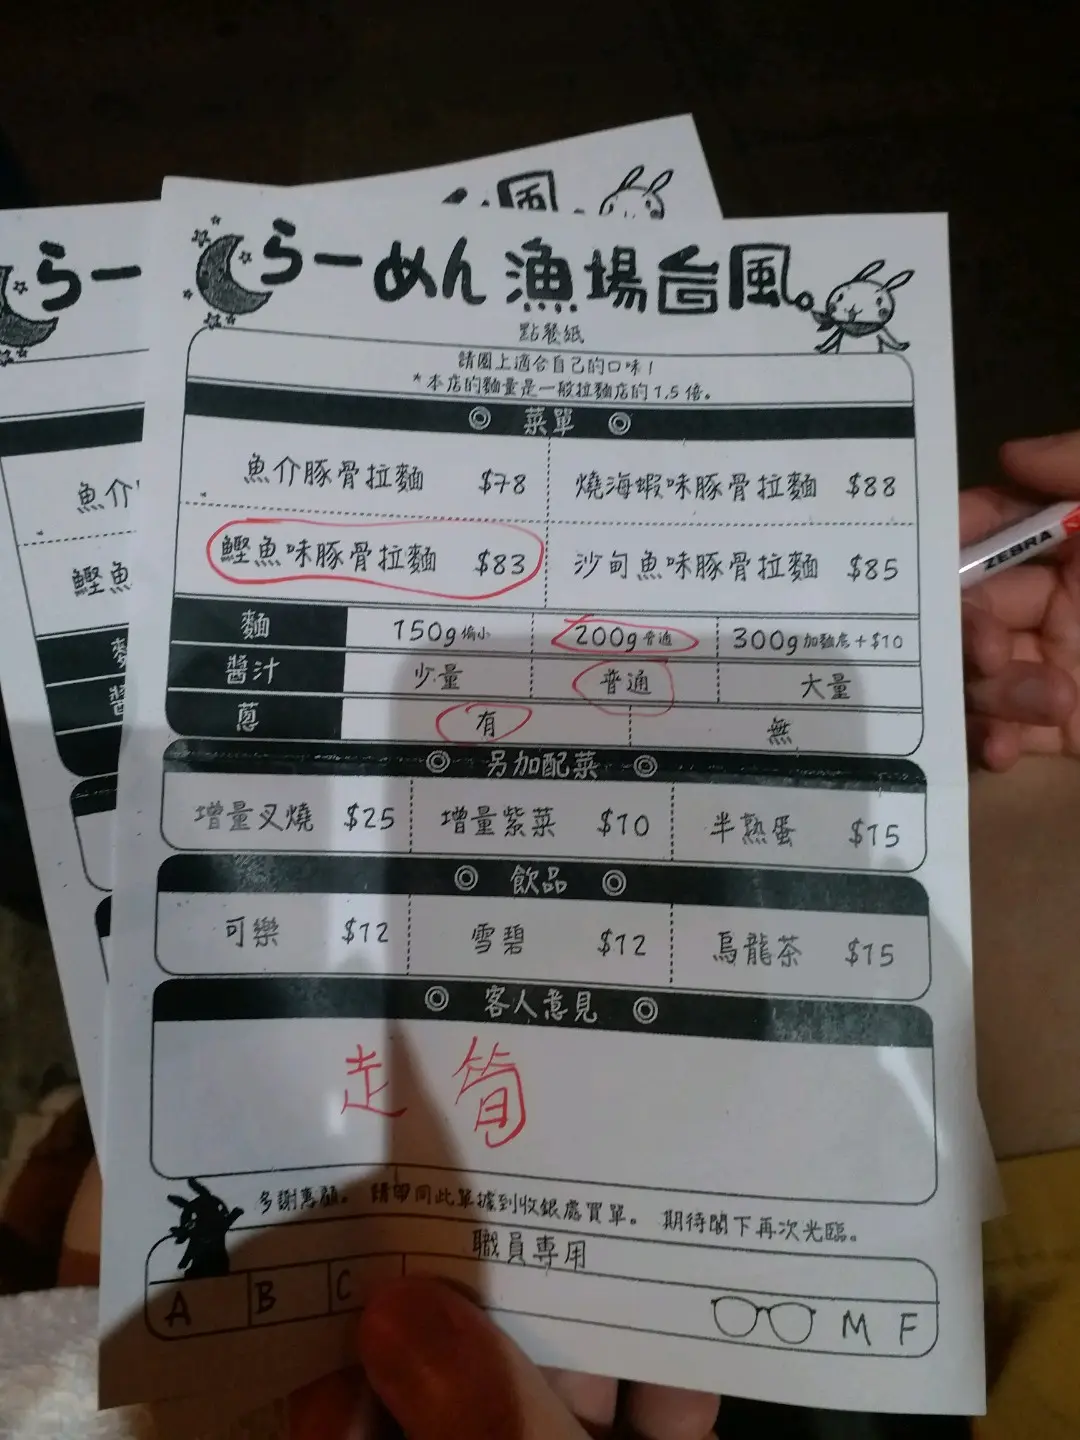 らーめん 漁場台風。
點餐紙
請圈上適合自己的口味！
*本店的麵量是一般拉麵店的1.5倍。
◎ 菜單 ◎
魚介豚骨拉麵 $78 燒海蝦味豚骨拉麵 $88
鰹魚味豚骨拉麵 $83 沙甸魚味豚骨拉麵 $85
麵 150g偏小 200g普通 300g加麵底+$10
醬汁 少量 普通 大量
蔥 有 無
◎ 另加配菜 ◎
增量叉燒 $25 增量紫菜 $10 半熟蛋 $15
◎ 飲品 ◎
可樂 $12 雪碧 $12 烏龍茶 $15
◎ 客人意見 ◎
走 筍
多謝惠顧。 請帶同此單據到收銀處買單。 期待閣下再次光臨。
職員專用
A B C M F
らー
魚介
鰹魚
風
ZEBRA